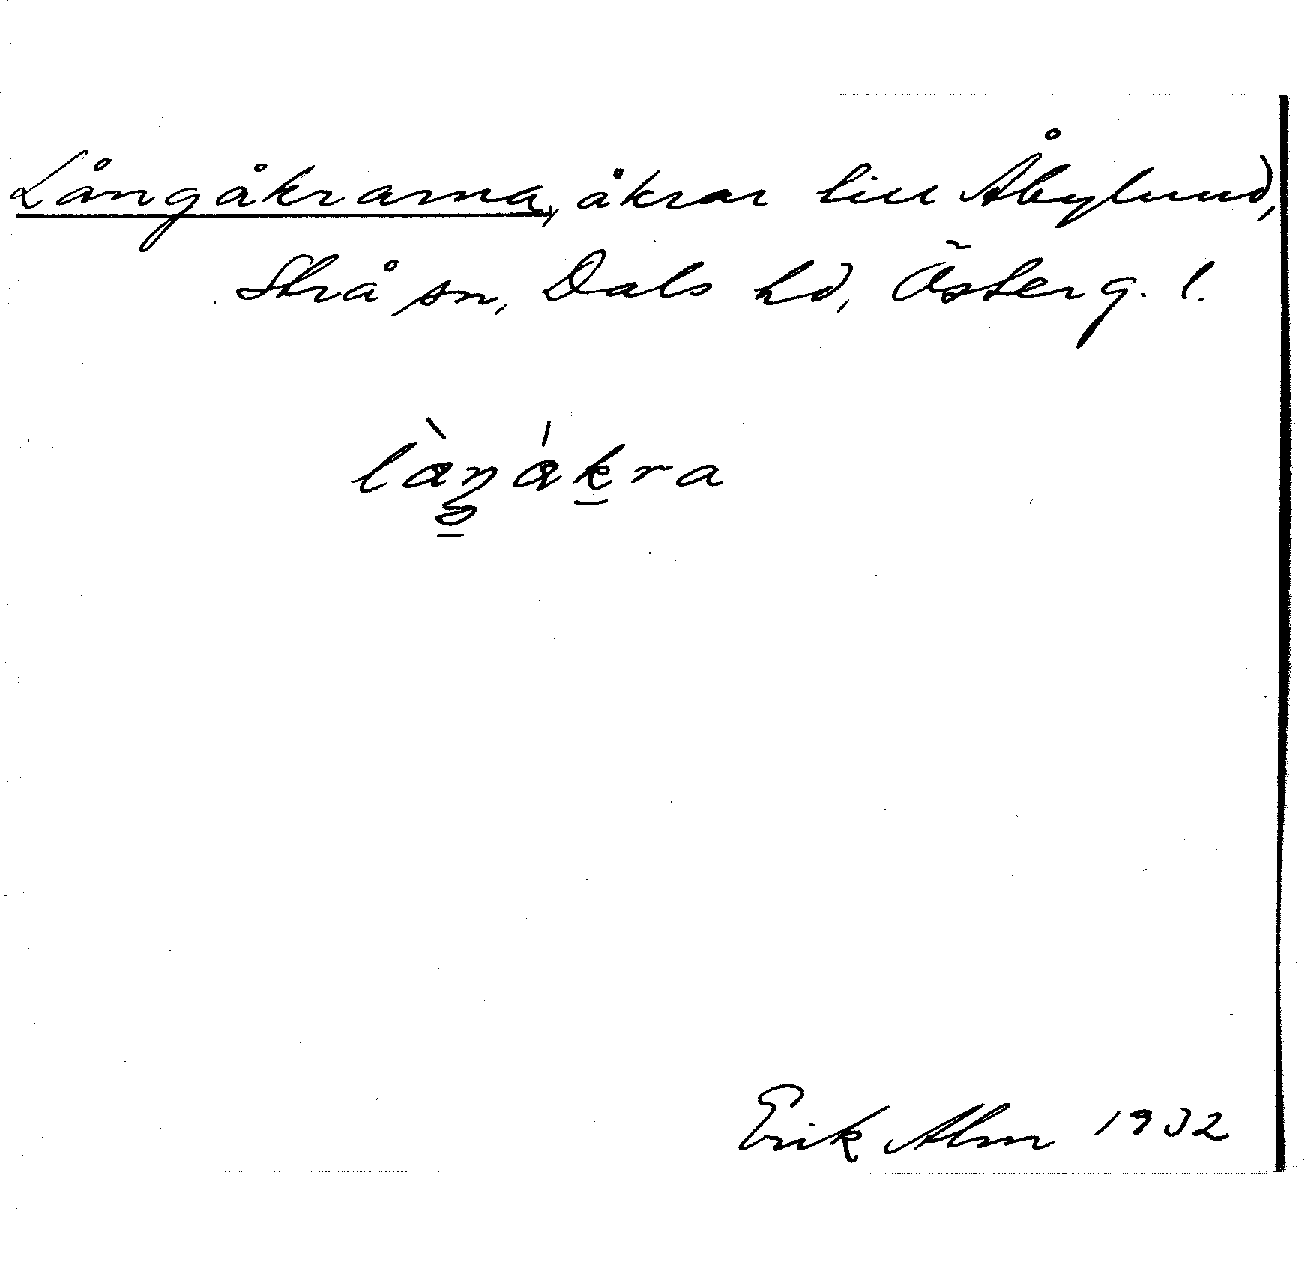 Långåkrarna, åkrar till Åbylund,
Strå sn, Dals hd, Österg. l.
Erik Alm 1932